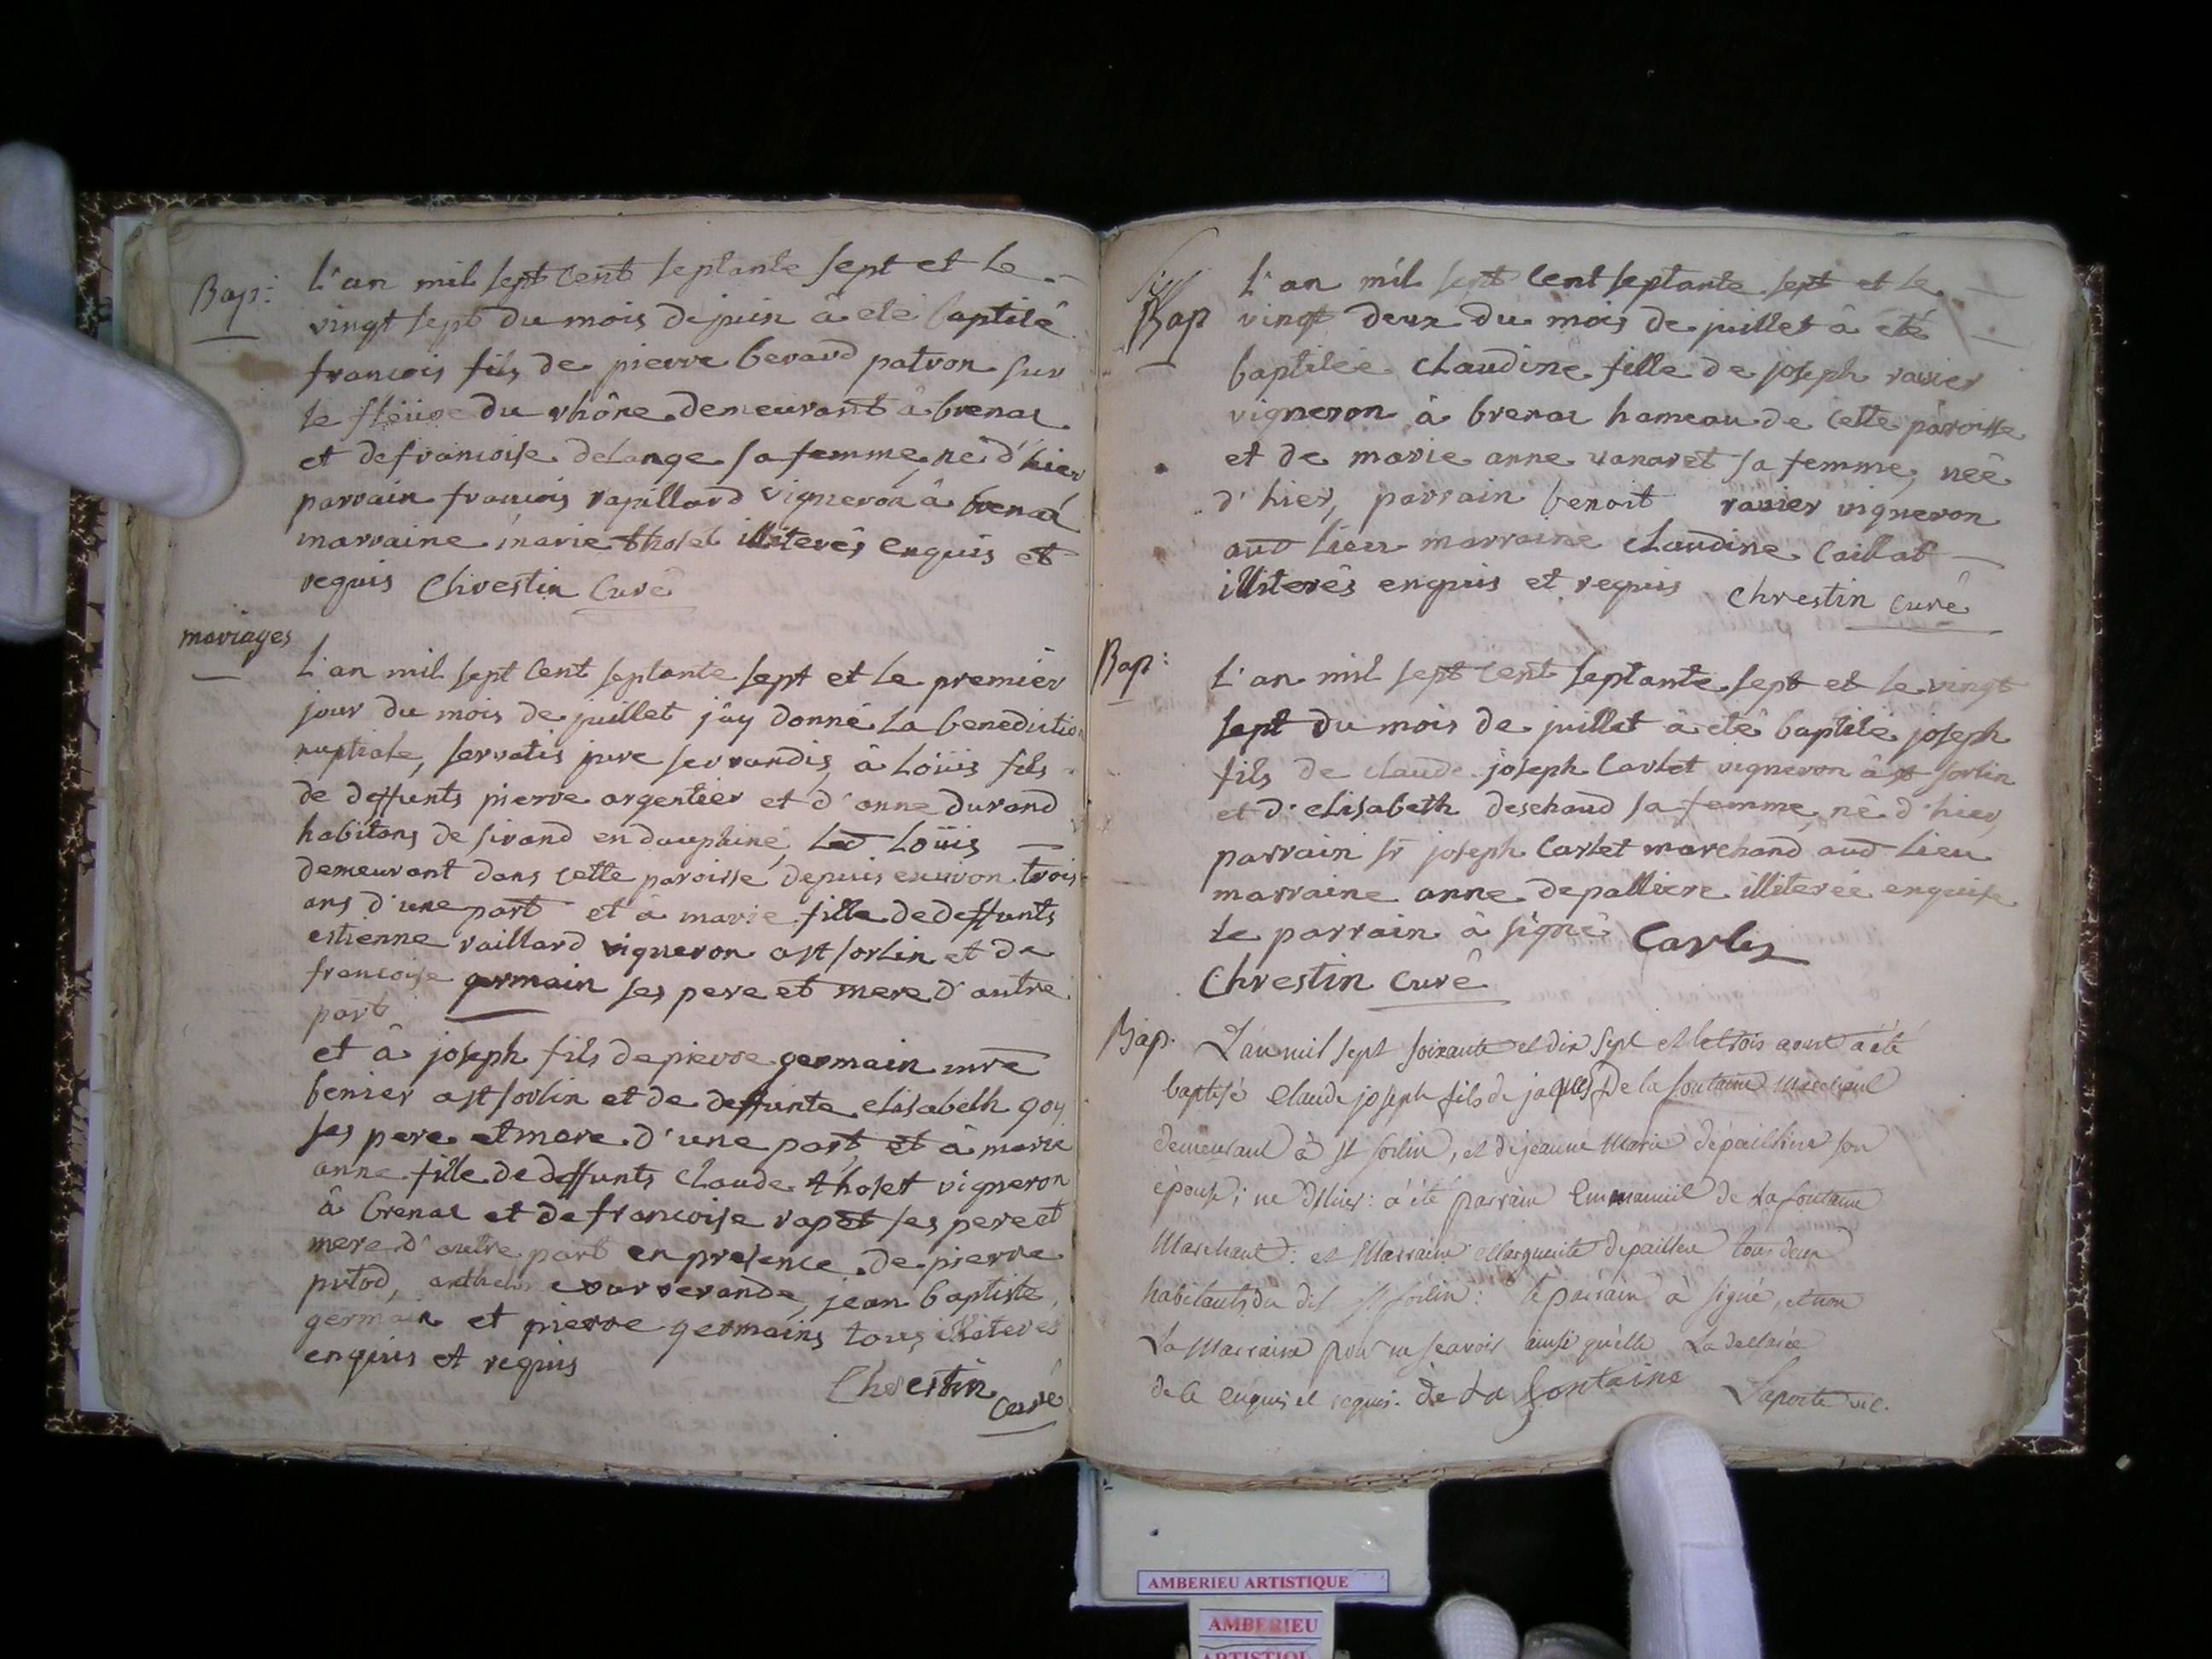 Bap:
L'an mil sept cent septante sept et le
vingt sept du mois de juin â eté baptisé
francois fils de pierre berard patron sur
le fleuve du rhône demeurant â brenas
et de francoise delange sa femme, né d'hier
parrain francois rapillard vigneron â brenas
marraine marie thoset illiterés enquis et
requis Chrestin Curé
mariages
L'an mil sept cent septante sept et le premier
jour du mois de juillet j'ay donné la benediction
nuptiale, servatis jure servandis, â Loüis fils
de deffunts pierre argentier et d'anne durand
habitans de sirand en dauphiné, led Loüis
demeurant dans cette paroisse depuis environ trois
ans d'une part et â marie fille de deffunts
estienne raillard vigneron a st sorlin et de
francoise germain ses pere et mere d'autre
part
et â joseph fils de pierre germain mre
benier a st sorlin et de deffunte elisabeth goy
ses pere et mere d'une part, et â marie
anne fille de deffunts claude thoset vigneron
â brenas et de francoise rapet ses pere et
mere d'autre part en presence de pierre
jean baptiste
germain et pierre germains tous illiterés
enquis et requis
Chrestin
Curé
Bap
L'an mil sept cent septante sept et le
vingt deux du mois de juillet â eté
baptisée claudine fille de joseph ravier
vigneron â brenas hameau de cette paroisse
et de marie anne vanaret sa femme, née
d'hier, parrain benoit ravier vigneron
aud lieu marraine claudine caillat
illiterés enquis et requis Chrestin Curé
Bap:
L'an mil sept cent septante sept et le vingt
sept du mois de juillet â eté baptisé joseph
fils de claude joseph Carlet vigneron â st sorlin
et d'elisabeth deschaud sa femme, né d'hier
parrain sr joseph Carlet marchand aud lieu
marraine anne depalliere illiterée enquise
le parrain â signé Carlez
Chrestin Curé
Bap.
L'an mil sept soixante et dix sept et le trois aoust a été
baptisé Claude joseph fils de jaques De la fontaine Marchand
demeurant à st sorlin, et de jeanne Marie son
épouse; né d'hier: a été parrain Emmanuel de La fontaine
Marchand: et Marraine Marguerite depailleu tous deux
habitants du dit st sorlin: le parrain à signé, et non
La Marraine pour ne scavoir ainsi qu'elle La dellarée
de ce enquis et requis. De La fontaine Laporte vic.
AMBERIEU ARTISTIQUE
AMBERIEU
ARTISTIQUE